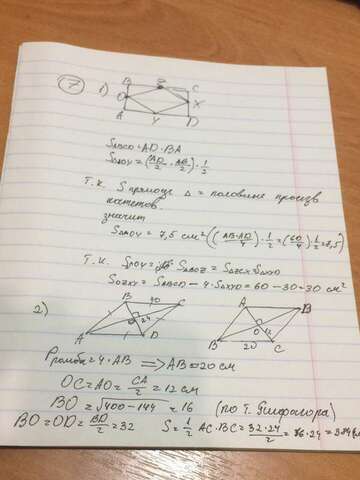 7 1) B Z C
O X
A Y D
S_ABCD = AD · BA
S_AOY = (AD/2 · AB/2) · 1/2
Т.к. S прямоуг △ = половине произв
катетов.
значит
S_△AOY = 7,5 см² ((AB·AD/4) · 1/2 = (60/4) 1/2 = 7,5)
Т.к. S_AOY = S_△BOZ = S_△ZCX = S_△XYD
S_OZXY = S_ABCD − 4 · S_△XYD = 60 − 30 = 30 см²
2) B 20 C A B
O 24 O 12
A D 20 C
Pромба = 4 · AB ⟹ AB = 20 см
OC = AO = CA/2 = 12 см
BO = √400−144 = 16 (по т. Пифагора)
BO = OD = BD/2 = 32 S = 1/2 AC · BC = 32·24/2 = 16·24 =